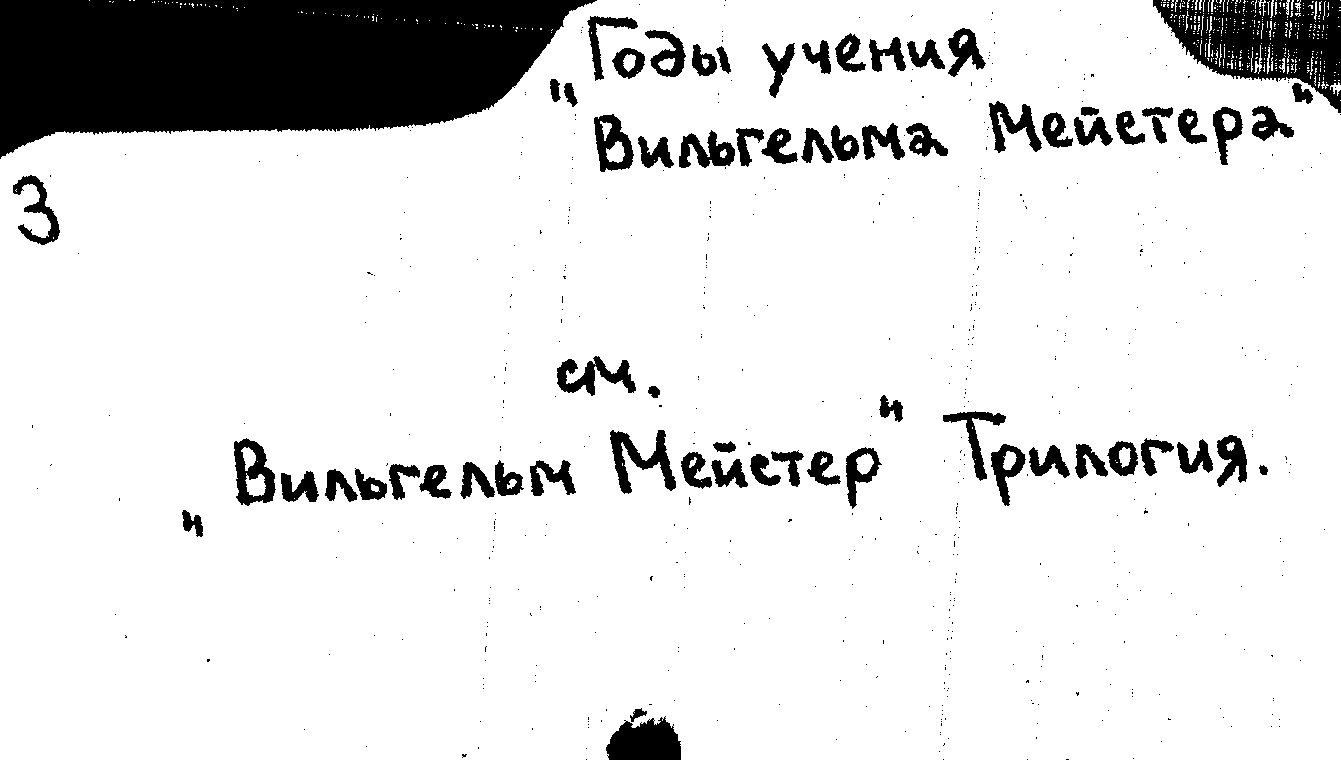 „Годы учения
Вильгельма Мейстера"
3
см.
„Вильгельм Мейстер" Трилогия.